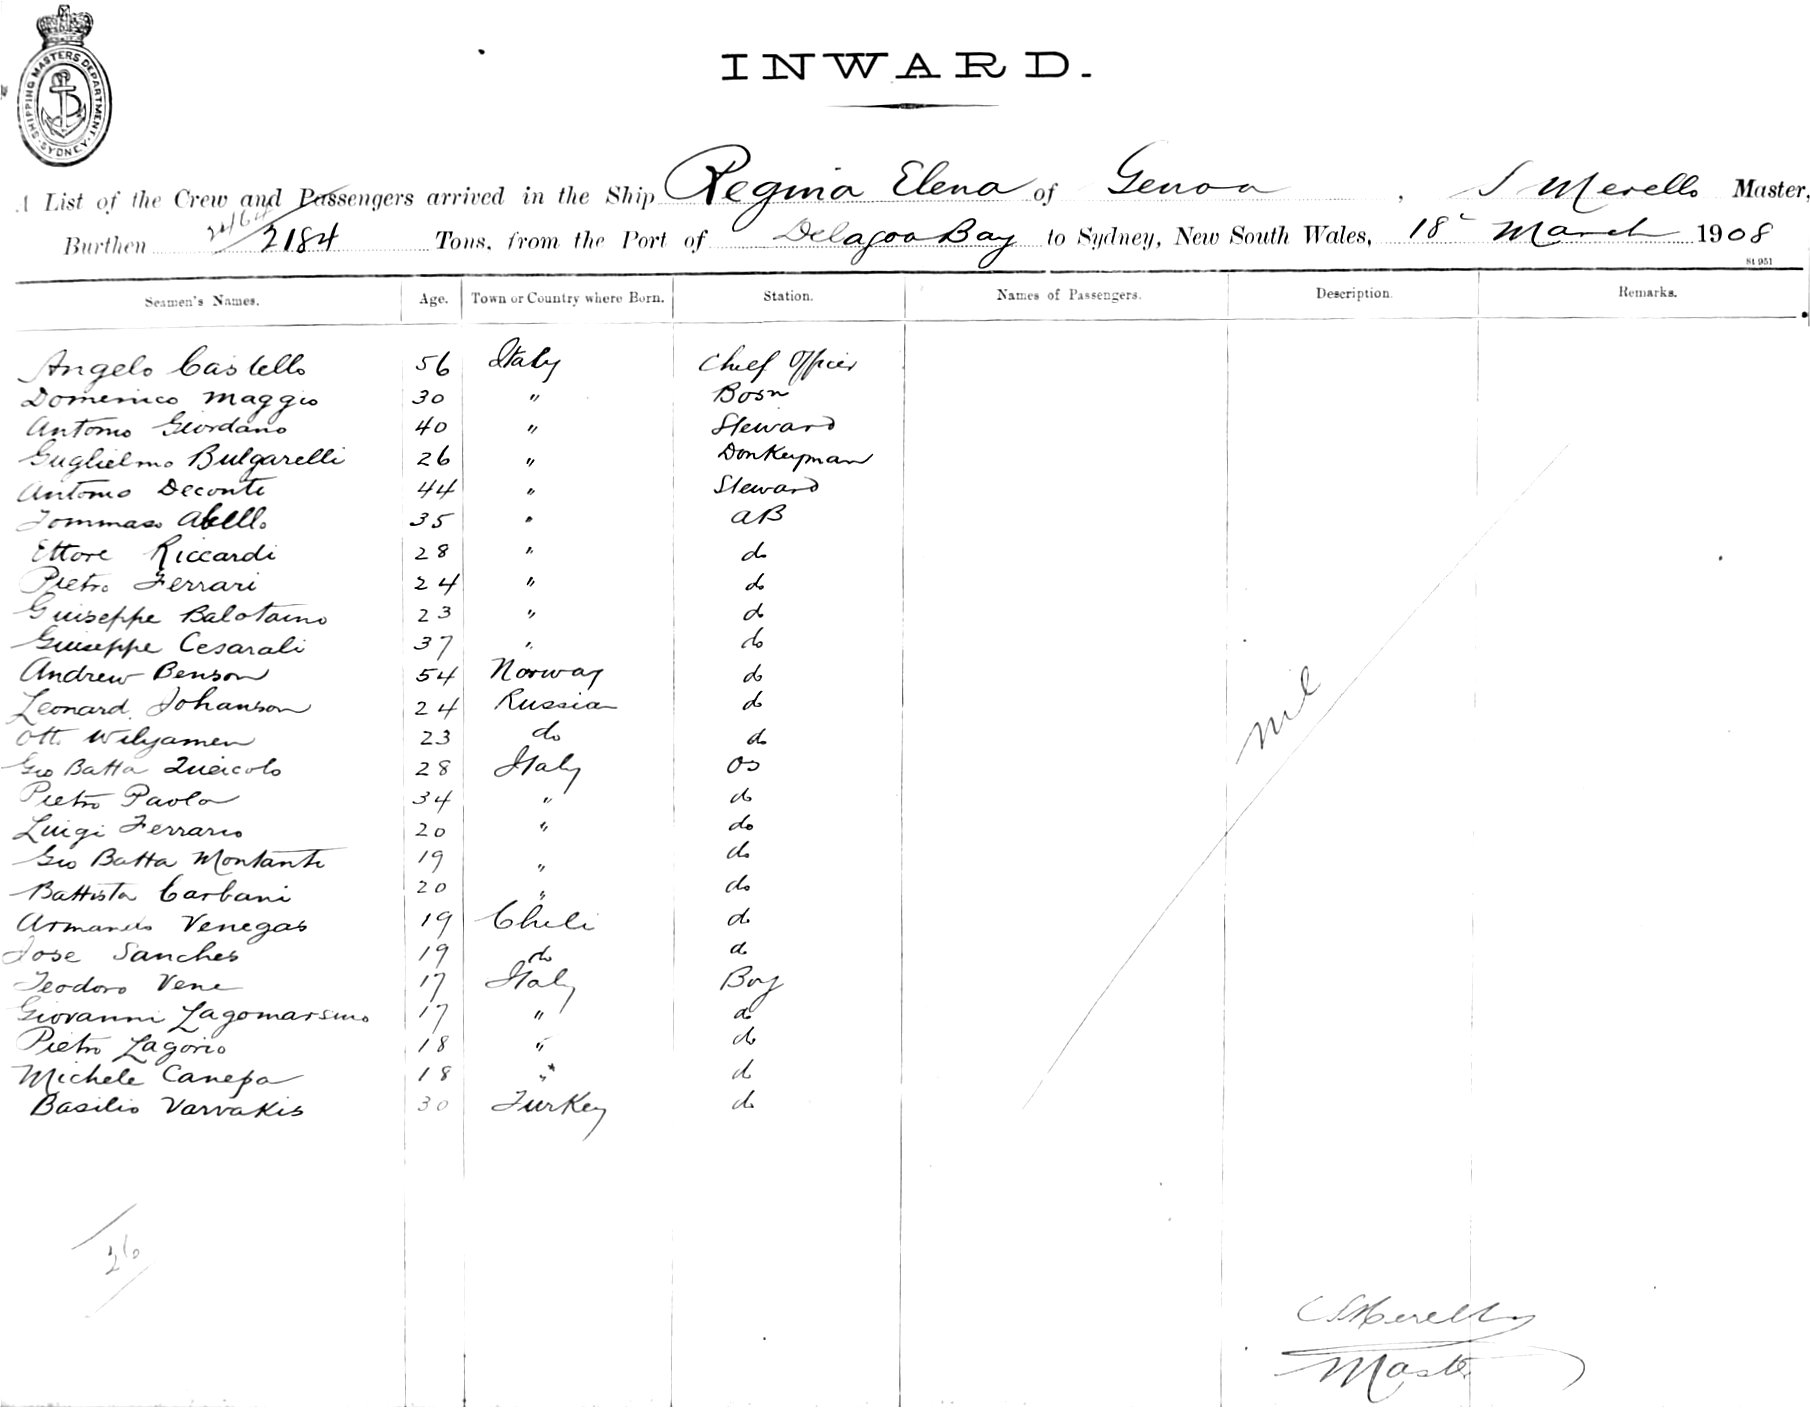 SHIPPING MASTERS DEPARTMENT
SYDNEY
INWARD.
A List of the Crew and Passengers arrived in the Ship Regina Elena of Genoa, S Merello Master,
Burthen 2464 2184 Tons, from the Port of Delagoa Bay to Sydney, New South Wales, 18 March 1908
St 951
Seamen's Names. Age. Town or Country where Born. Station. Names of Passengers. Description. Remarks.
Angelo Castello 56 Italy Chief Officer
Domenico Maggio 30 " Bosn
Antonio Giordano 40 " Steward
Guglielmo Bulgarelli 26 " Donkeyman
Antonio Deconti 44 " Steward
Tommaso Abello 35 " AB
Ettore Riccardi 28 " do
Pietro Ferrari 24 " do
Giuseppe Balotaino 23 " do
Giuseppe Cesarali 37 " do
Andrew Benson 54 Norway do
Leonard Johanson 24 Russian do
Ott. Wilyamen 23 do do
Gio Batta 28 Italy OS
Pietro Paola 34 " do
Luigi Ferrario 20 " do
Gio Batta Montanti 19 " do
Battista Carbani 20 " do
Armando Venegas 19 Chili do
Jose Sanches 19 do do
Teodoro Vene 17 Italy Boy
Giovanni Lagomarsino 17 " do
Pietro Lagorio 18 " do
Michele Canepa 18 " do
Basilio Varvakis 30 Turkey do
nil
26
S Merello
Master